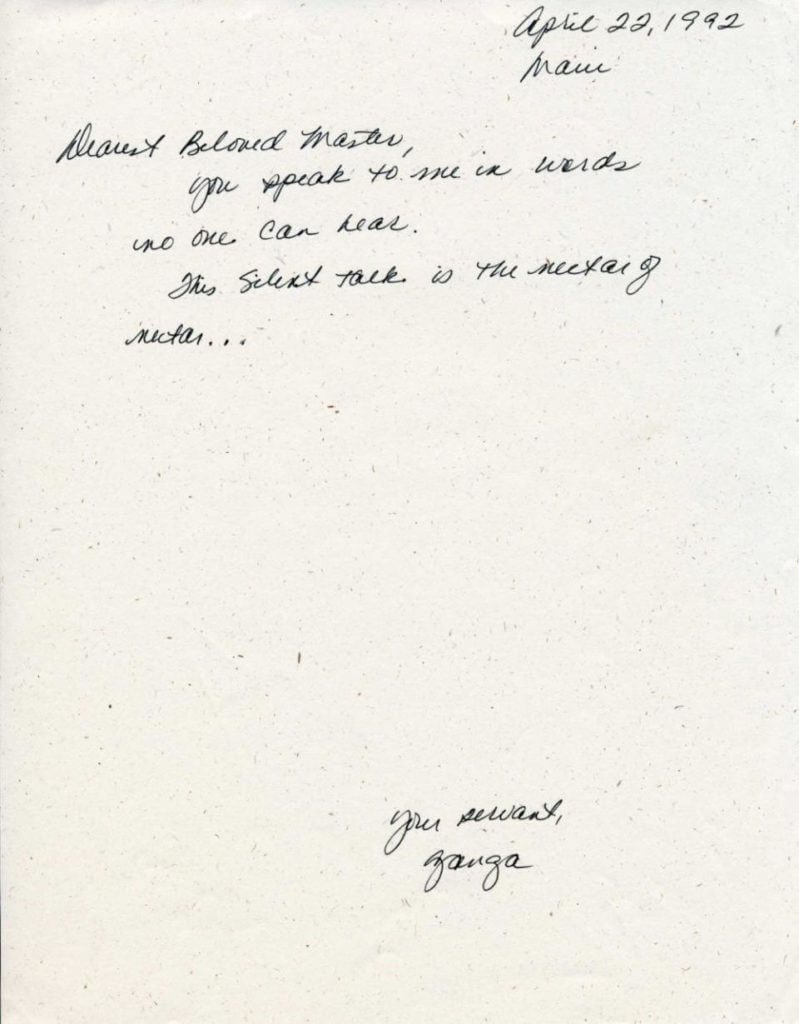 April 22, 1992
Maui
Dearest Beloved Master,
you speak to me in words
no one can hear.
This Silent talk is the nectar of
nectar...
your servant,
ganga